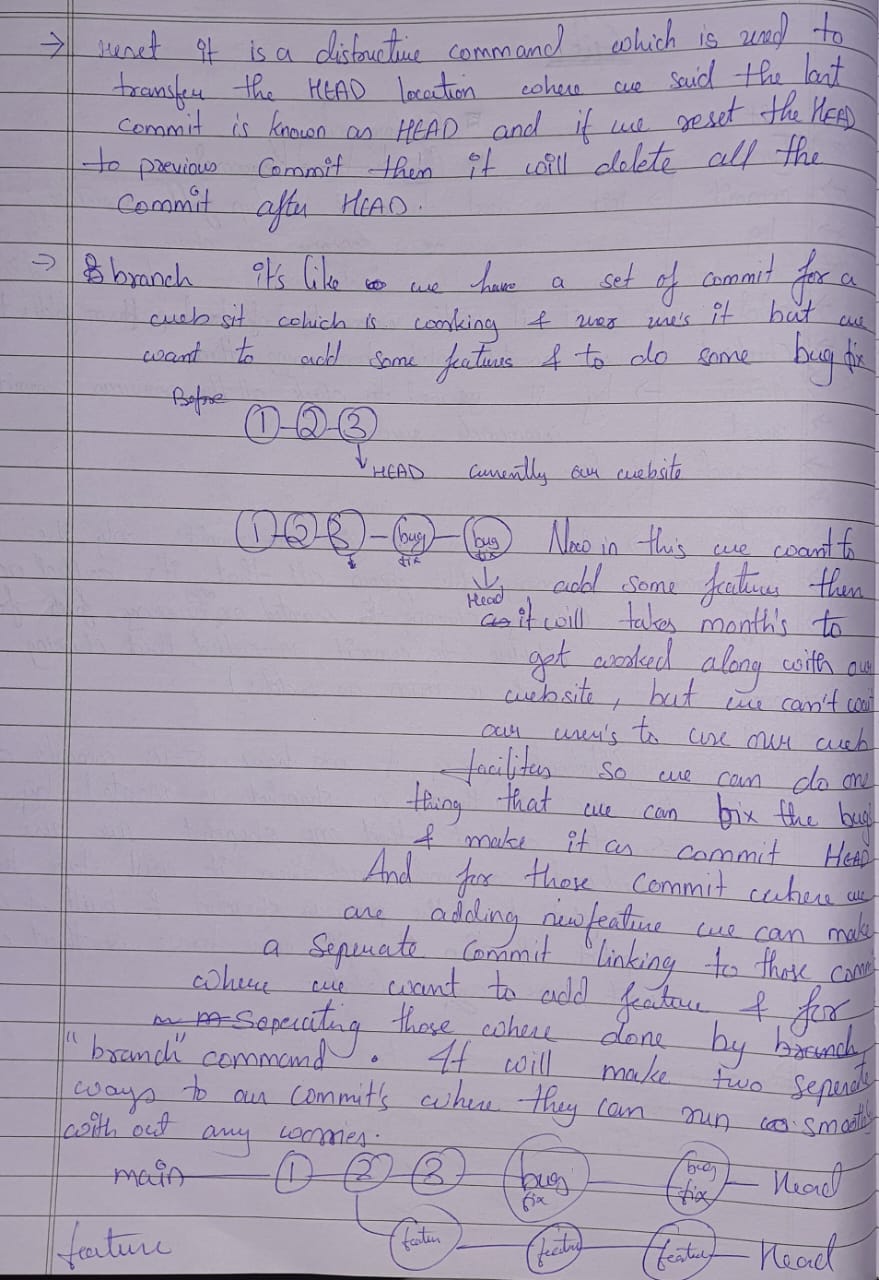 → reset it is a distructive command which is used to
transfer the HEAD location where we said the last
commit is known as HEAD and if we reset the HEAD
to previous Commit then it will delete all the
Commit after HEAD.
→ branch it's like we have a set of commit for a
web sit which is working & user use's it but we
want to add some features & to do some bug fix
Before
1 - 2 - 3
↓ HEAD currently our website
1 - 2 - 3 - bug fix - bug fix Now in this we want to
↓ Head add some features then
as it will takes month's to
get worked along with our
website, but we can't wait
our user's to use our web
facilites so we can do one
thing that we can bix the bug
& make it as commit HEAD
And for those commit where we
are adding new feature we can make
a Seperate Commit linking to those comm
where we want to add feature & for
Seperating those where done by branch
"branch" command. It will make two Seperate
ways to our commit's where they can run smooth
with out any worries.
main 1 2 3 bug fix bug fix Head
feature featur featur featur Head